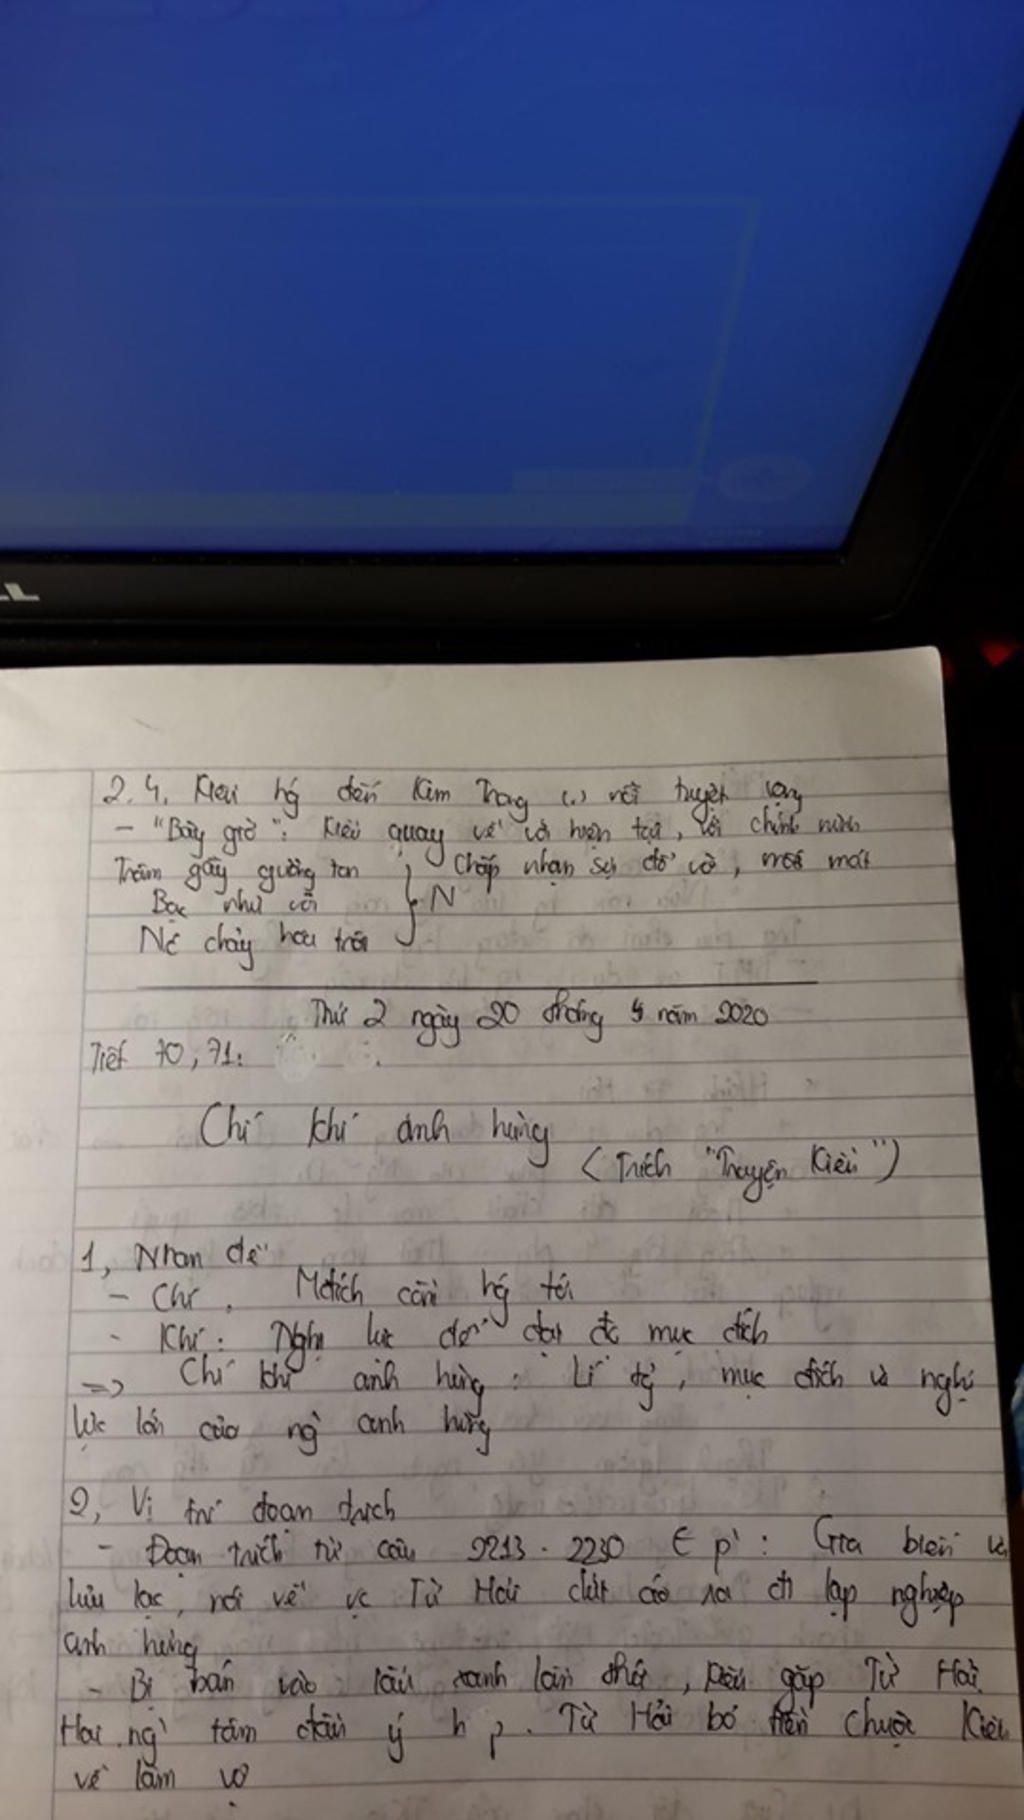 LL
2.4. Kiều hg đến Kim Trọng (.) nỗi tuyệt vọng
- "Bây giờ": Kiều quay về với hiện tại, với chính mình
Trâm gãy gương tan } Chấp nhận sự đổ vỡ, mất mát
Bạc như vôi } N
Nc chảy hoa trôi
Thứ 2 ngày 20 tháng 4 năm 2020
Tiết 70, 71:
Chí khí anh hùng
(Trích "Truyện Kiều")
1, Nhan đề
- Chí: Mđích cần hg tới
- Khí: Nghị lực để đạt đc mục đích
=> Chí khí anh hùng: Lí tg, mục đích và nghị
lực lớn của ng` anh hùng
2, Vị trí đoạn trích
- Đoạn trích từ câu 2213 - 2230 ∈ p`: Gia biến và
lưu lạc, nói về vc Từ Hải dứt áo ra đi lập nghiệp
anh hùng
- Bị bán vào lầu xanh lần thứ, Kiều gặp Từ Hải
Hai ng` tâm đầu ý h p. Từ Hải bỏ tiền chuộc Kiều
về làm vợ